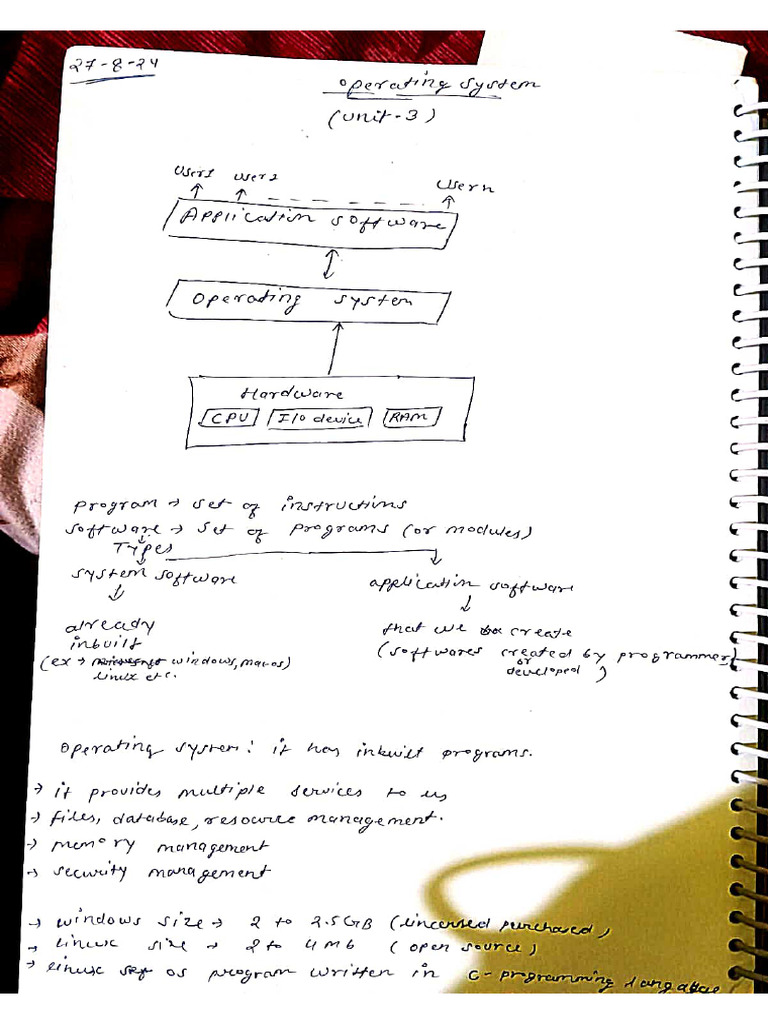 27-8-24
operating system
(unit-3)
user1 user2 usern
Application software
operating system
Hardware
CPU I/O device RAM
program → set of instructions
software → set of programs (or modules)
Types
system software application software
already that we create
inbuilt (softwares created by programmers
(ex → windows, macos) or
linux etc. developed )
operating system: it has inbuilt programs.
→ it provides multiple services to us
→ files, database, resource management.
→ memory management
→ security management
→ windows size → 2 to 2.5GB (lincensed purchased)
→ linux size → 2 to 4 MB (open source)
→ linux os program written in C-programming